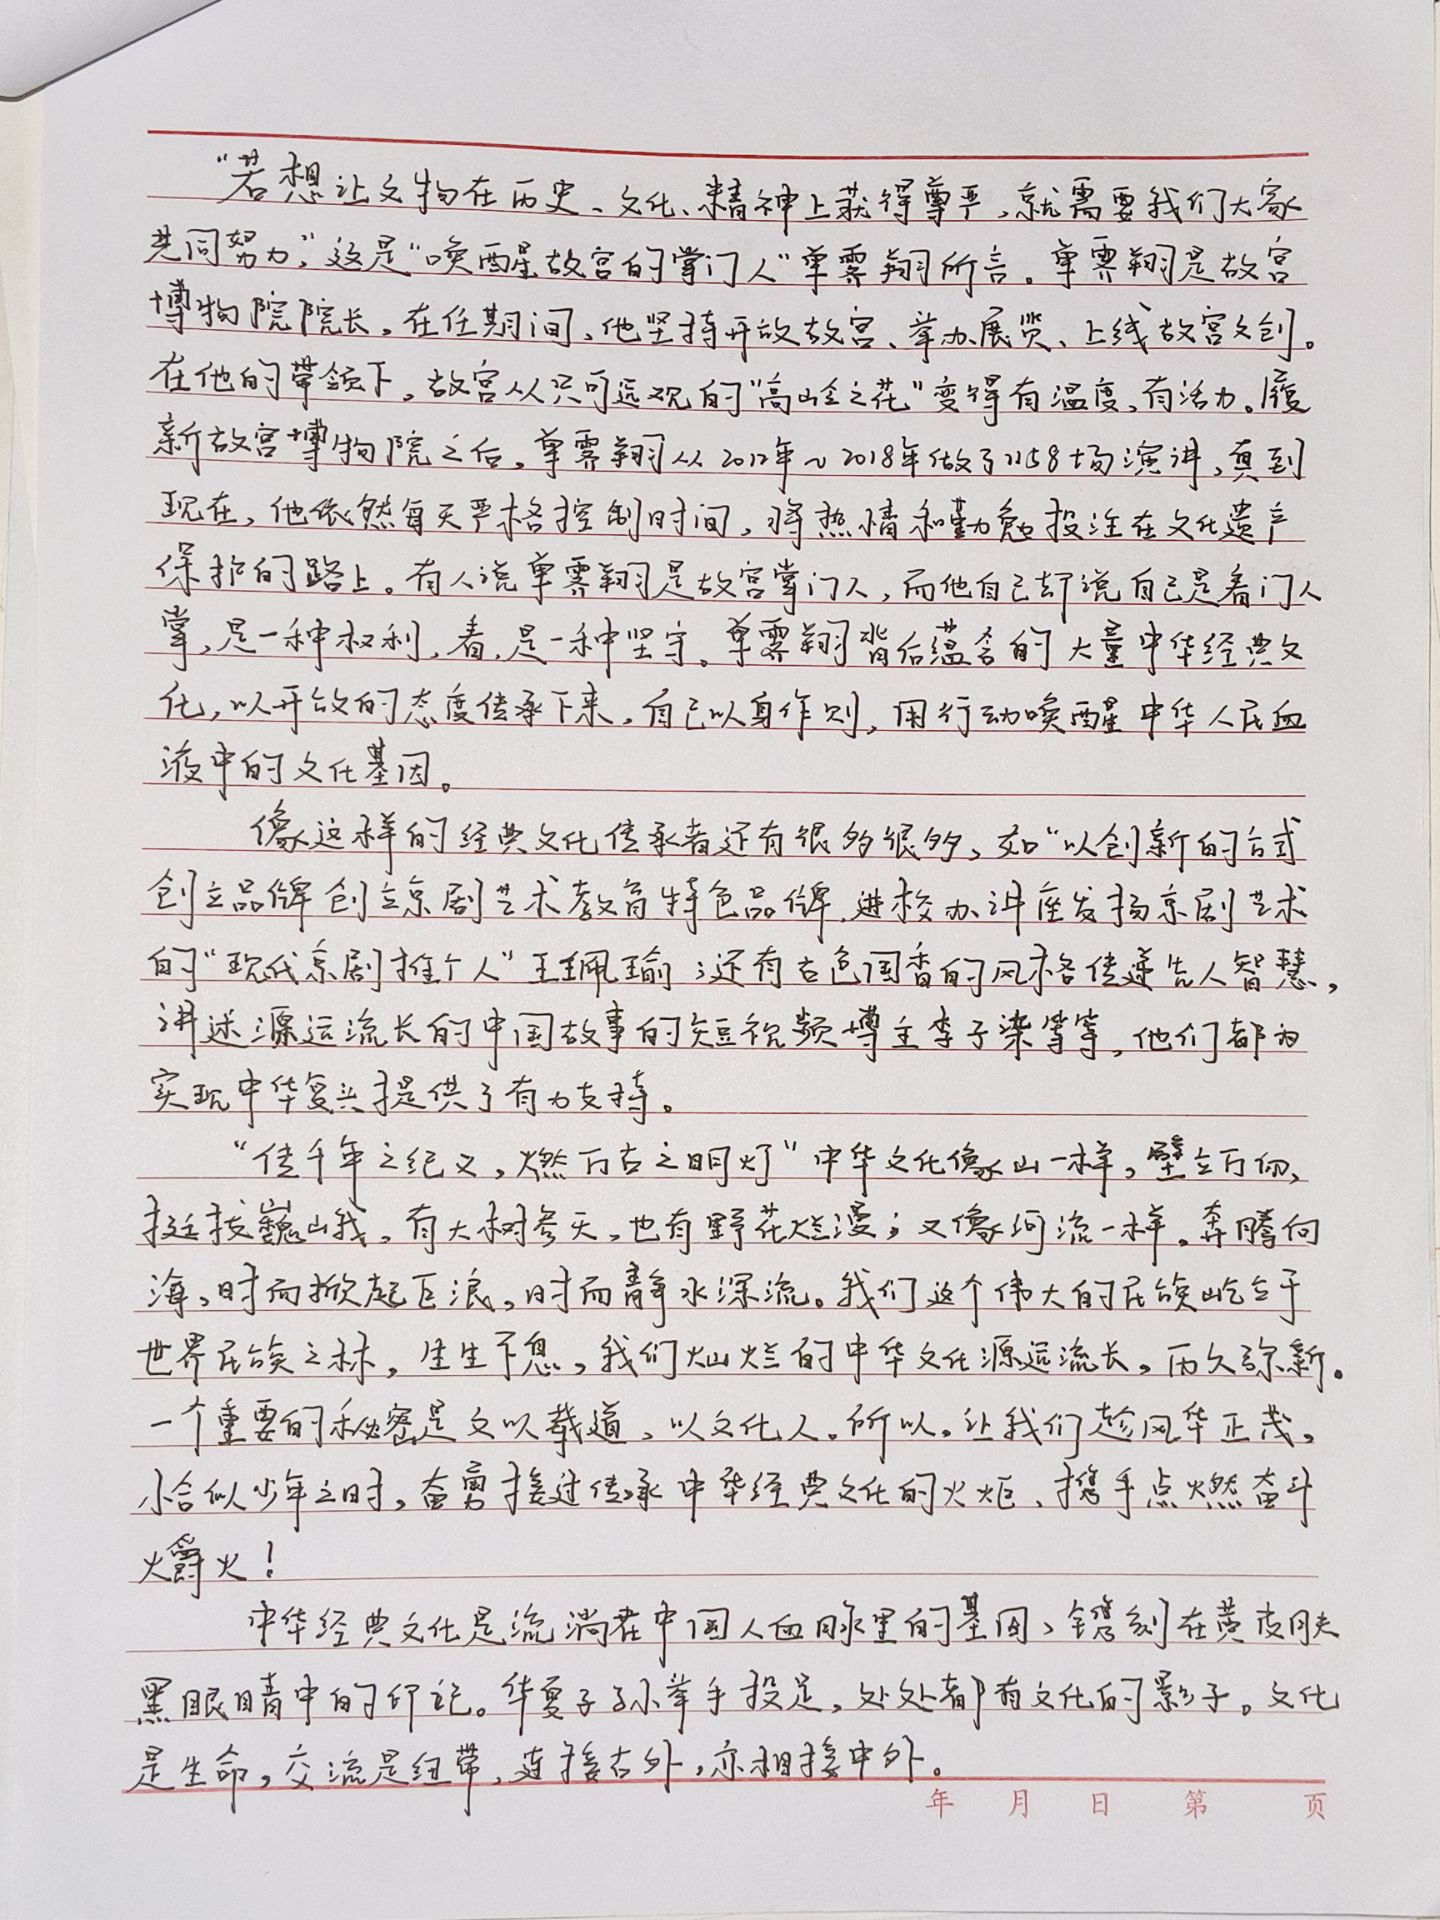 “若想让文物在历史、文化、精神上获得尊严，就需要我们大家
共同努力，”这是“唤醒故宫的掌门人”单霁翔所言。单霁翔是故宫
博物院院长，在任期间，他坚持开放故宫、举办展览、上线故宫文创。
在他的带领下，故宫从只可远观的“高岭之花”变得有温度，有活力。履
新故宫博物院之后，单霁翔从2012年~2018年做了1158场演讲，真到
现在，他依然每天严格控制时间，将热情和勤勉投注在文化遗产
保护的路上。有人说单霁翔是故宫掌门人，而他自己却说自己是看门人
掌，是一种权利，看，是一种坚守。单霁翔背后蕴含的大量中华经典文
化，以开放的态度传承下来，自己以身作则，用行动唤醒中华人民血
液中的文化基因。
像这样的经典文化传承者还有很多很多，如“以创新的方式
创立品牌创立京剧艺术教育特色品牌，进校办讲座发扬京剧艺术
的“现代京剧推个人”王珮瑜；还有古色国香的风格传递先人智慧，
讲述源远流长的中国故事的短视频博主李子柒等等，他们都为
实现中华复兴提供了有力支持。
“传千年之纪文，燃万古之明灯”中华文化像山一样，壁立万仞，
挺拔巍峨，有大树参天，也有野花烂漫；又像河流一样，奔腾向
海，时而掀起巨浪，时而静水深流。我们这个伟大的民族屹立于
世界民族之林，生生不息，我们灿烂的中华文化源远流长，历久弥新。
一个重要的秘密是文以载道，以文化人。所以，让我们趁风华正茂，
恰似少年之时，奋勇接过传承中华经典文化的火炬，携手点燃奋斗
爝火！
中华经典文化是流淌在中国人血脉里的基因，镌刻在黄皮肤
黑眼睛中的印记。华夏子孙举手投足，处处都有文化的影子。文化
是生命，交流是纽带，连接古外，亦相接中外。
年 月 日 第 页